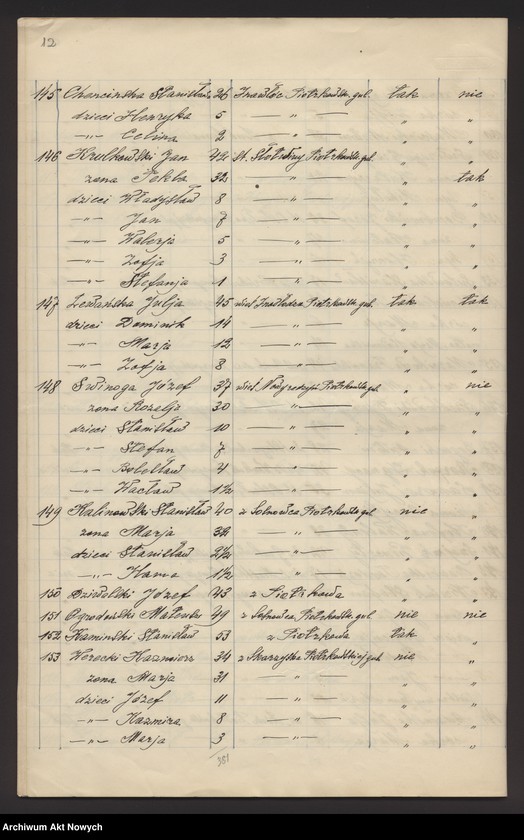 12
145 Charcinska Stanisława 26 Piotrkowsk. gub. tak nie
dzieci Henryka 5 — " — " "
—"— Celina 2 — " — " "
146 Krulkowski Jan 42 st. Piotrkowsk. gub. " "
zona Tekla 32 — " — " tak
dzieci Władysław 8 — " — " "
—"— Jan 7 — " — " "
—"— Walerja 5 — " — " "
—"— Zofja 3 — " — " "
—"— Stefanja 1 — " — " "
147 Julja 45 wieś Piotrkowsk. gub. tak tak
dzieci Dominik 14 — " — " "
—"— Marja 12 — " — " "
—"— Zofja 8 — " — " "
148 Swinoga Józef 37 wieś Piotrkowsk. gub. " nie
zona Rozalja 30 — " — " "
dzieci Stanisław 10 — " — " "
—"— Stefan 7 — " — " "
—"— Bolesław 4 — " — " "
—"— Wacław 1½ — " — " "
149 Kalinowski Stanisław 40 z Piotrkowsk. gub. nie "
zona Marja 32 — " — " "
dzieci Stanisław 2½ — " — " "
—"— 1½ — " — " "
150 Józef 43 z Piotrkowa " "
151 49 z Piotrkowsk. gub. nie nie
152 Kaminski Stanisław 53 z Piotrkowa tak "
153 Werecki Kazmierz 34 z Skarzysko Piotrkowskiej gub. nie "
zona Marja 31 — " — " "
dzieci Józef 11 — " — " "
—"— Kazmira 8 — " — " "
—"— Marja 3 — " — " "
381
Archiwum Akt Nowych
www.szukajwarchiwach.gov.pl